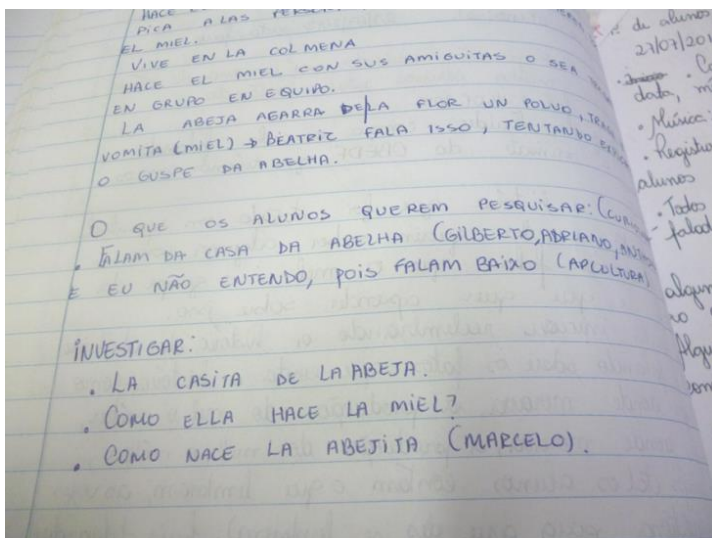 HACE
PICA A LAS
EL MIEL.
VIVE EN LA COLMENA
HACE EL MIEL CON SUS AMIGUITAS O SEA
EN GRUPO EN EQUIPO.
LA ABEJA AGARRA DELA FLOR UN POLVO,
VOMITA (MIEL) → BEATRIZ FALA ISSO, TENTANDO
O GUSPE DA ABELHA.
O QUE OS ALUNOS QUEREM PESQUISAR:
. FALAM DA CASA DA ABELHA (GILBERTO, ADRIANO,
E EU NÃO ENTENDO, POIS FALAM BAIXO (APCULTURA)
INVESTIGAR:
. LA CASITA DE LA ABEJA.
. COMO ELLA HACE LA MIEL?
. COMO NACE LA ABEJITA (MARCELO).
de alunos
27/07/201
data,
• Música:
• Registro
alunos
• Todos
falad
algun
Algu